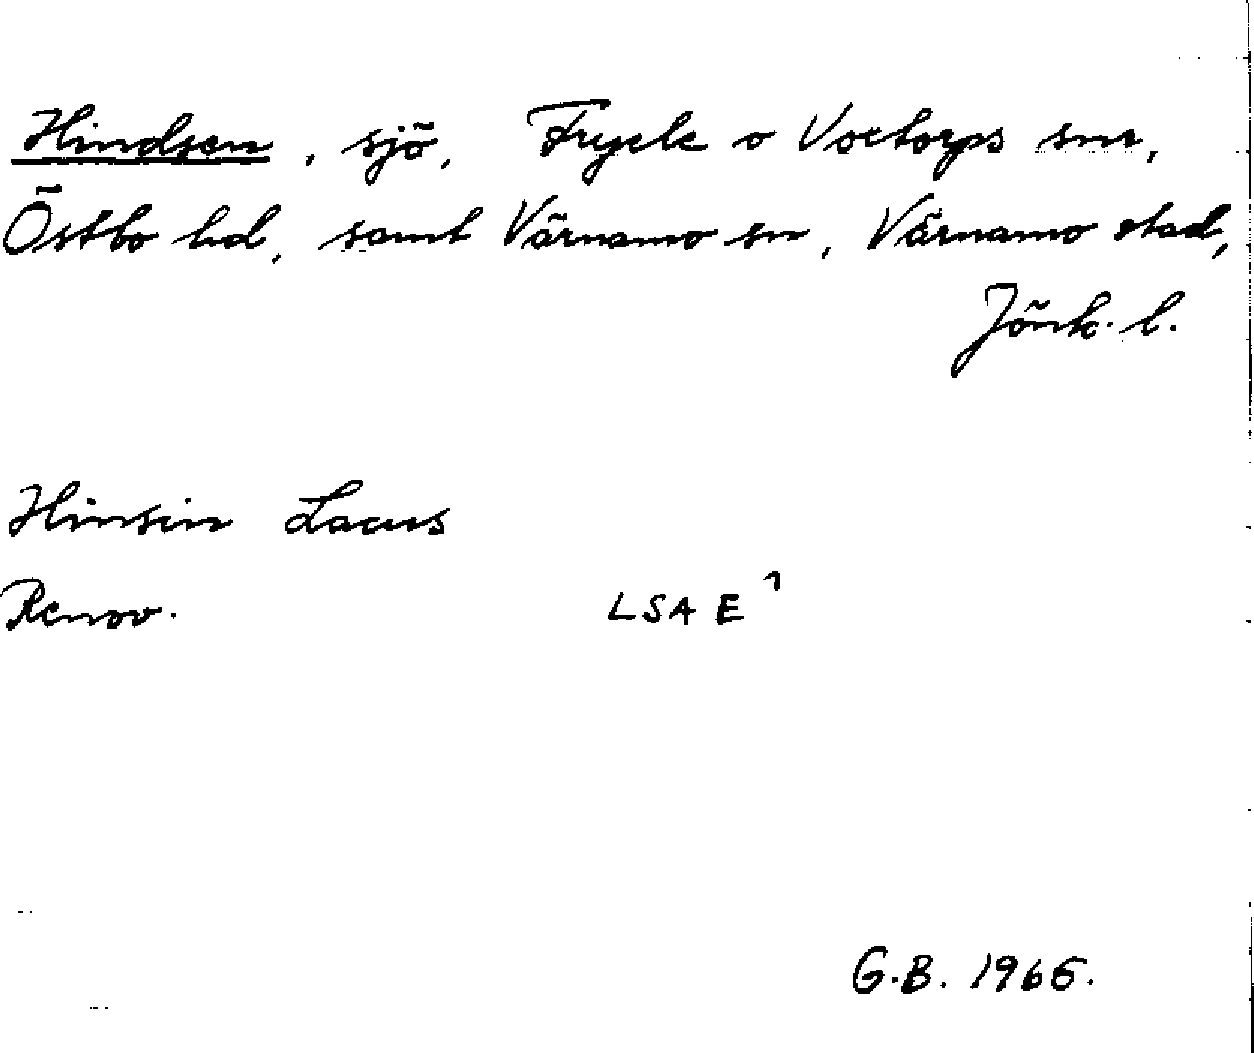 Hindsen, sjö, Fryele o Voxtorps snr,
Östbo hd, samt Värnamo sn, Värnamo stad,
Jönk. l.
Hinsin Lacus
Renov. LSA E¹
G.B. 1965.